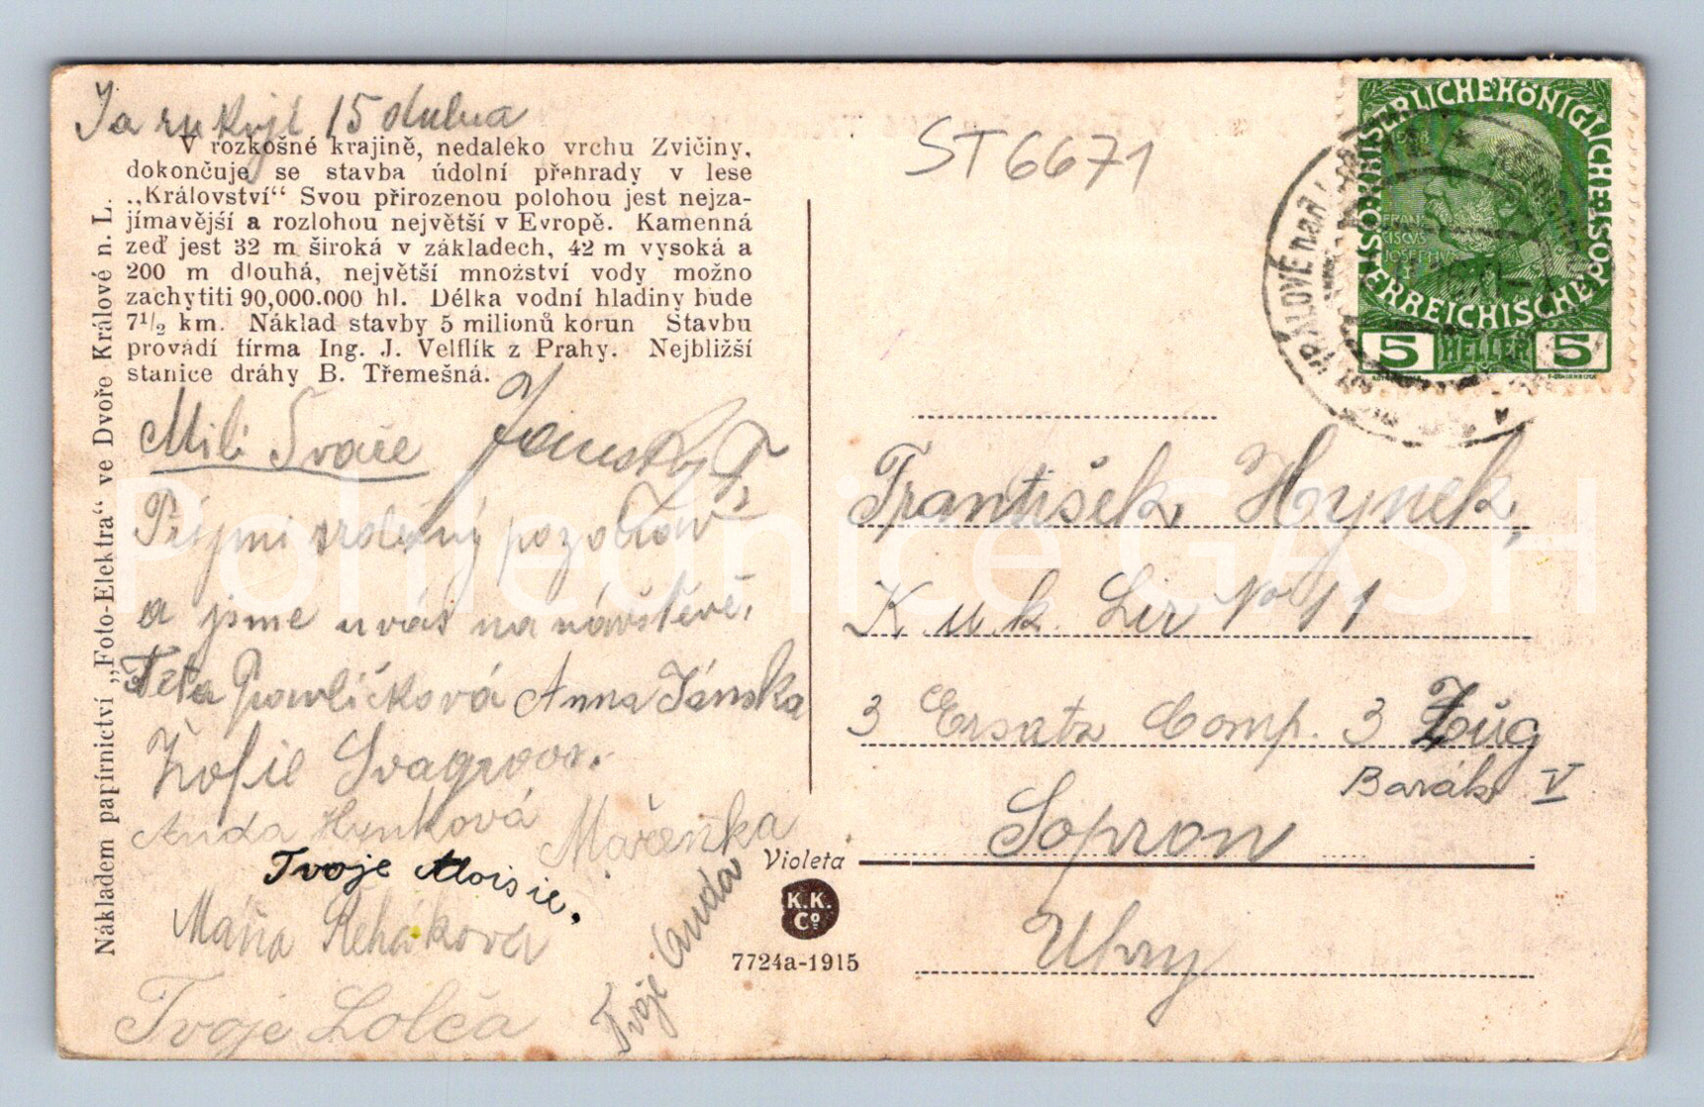 15 dubna
V rozkošné krajině, nedaleko vrchu Zvičiny,
dokončuje se stavba údolní přehrady v lese
„Království“ Svou přirozenou polohou jest nejza-
jímavější a rozlohou největší v Evropě. Kamenná
zeď jest 32 m široká v základech, 42 m vysoká a
200 m dlouhá, největší množství vody možno
zachytiti 90,000.000 hl. Délka vodní hladiny bude
7¹/₂ km. Náklad stavby 5 milionů korun Stavbu
provádí firma Ing. J. Velflík z Prahy. Nejbližší
stanice dráhy B. Třemešná.
Nákladem papírnictví „Foto-Elektra“ ve Dvoře Králové n. L.
Milí
Přijmi srdečný pozdrav
a jsme u vás na návštěvě.
Teta Pavlíčková Anna Jánska
Žofie
Anda Hynková Mařenka
Tvoje Aloisie.
Máňa Řeháková
Tvoje
Tvoje
Violeta
K.K.
Cº
7724a-1915
ST6671
ÖSTERREICHISCHE POST
KAISERLICHE KÖNIGLICHE
1908
FRAN
CISCVS
JOSEPHVS
I
5 HELLER 5
František Hynek,
K. u. k. Lir Nº 11
3 Ersatz Comp. 3 Zug
Barák V
Sopron
Uhry
Pohlednice GASH